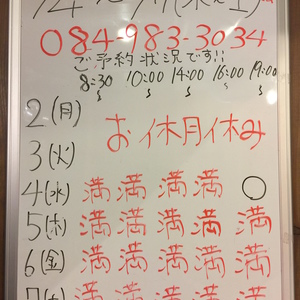 084-983-3034
ご予約状況です!!
8:30 10:00 14:00 16:00 19:00
2(月)
お休月休み
3(火)
4(水) 満 満 満 満 ○
5(木) 満 満 満 満 満
6(金) 満 満 満 満 満